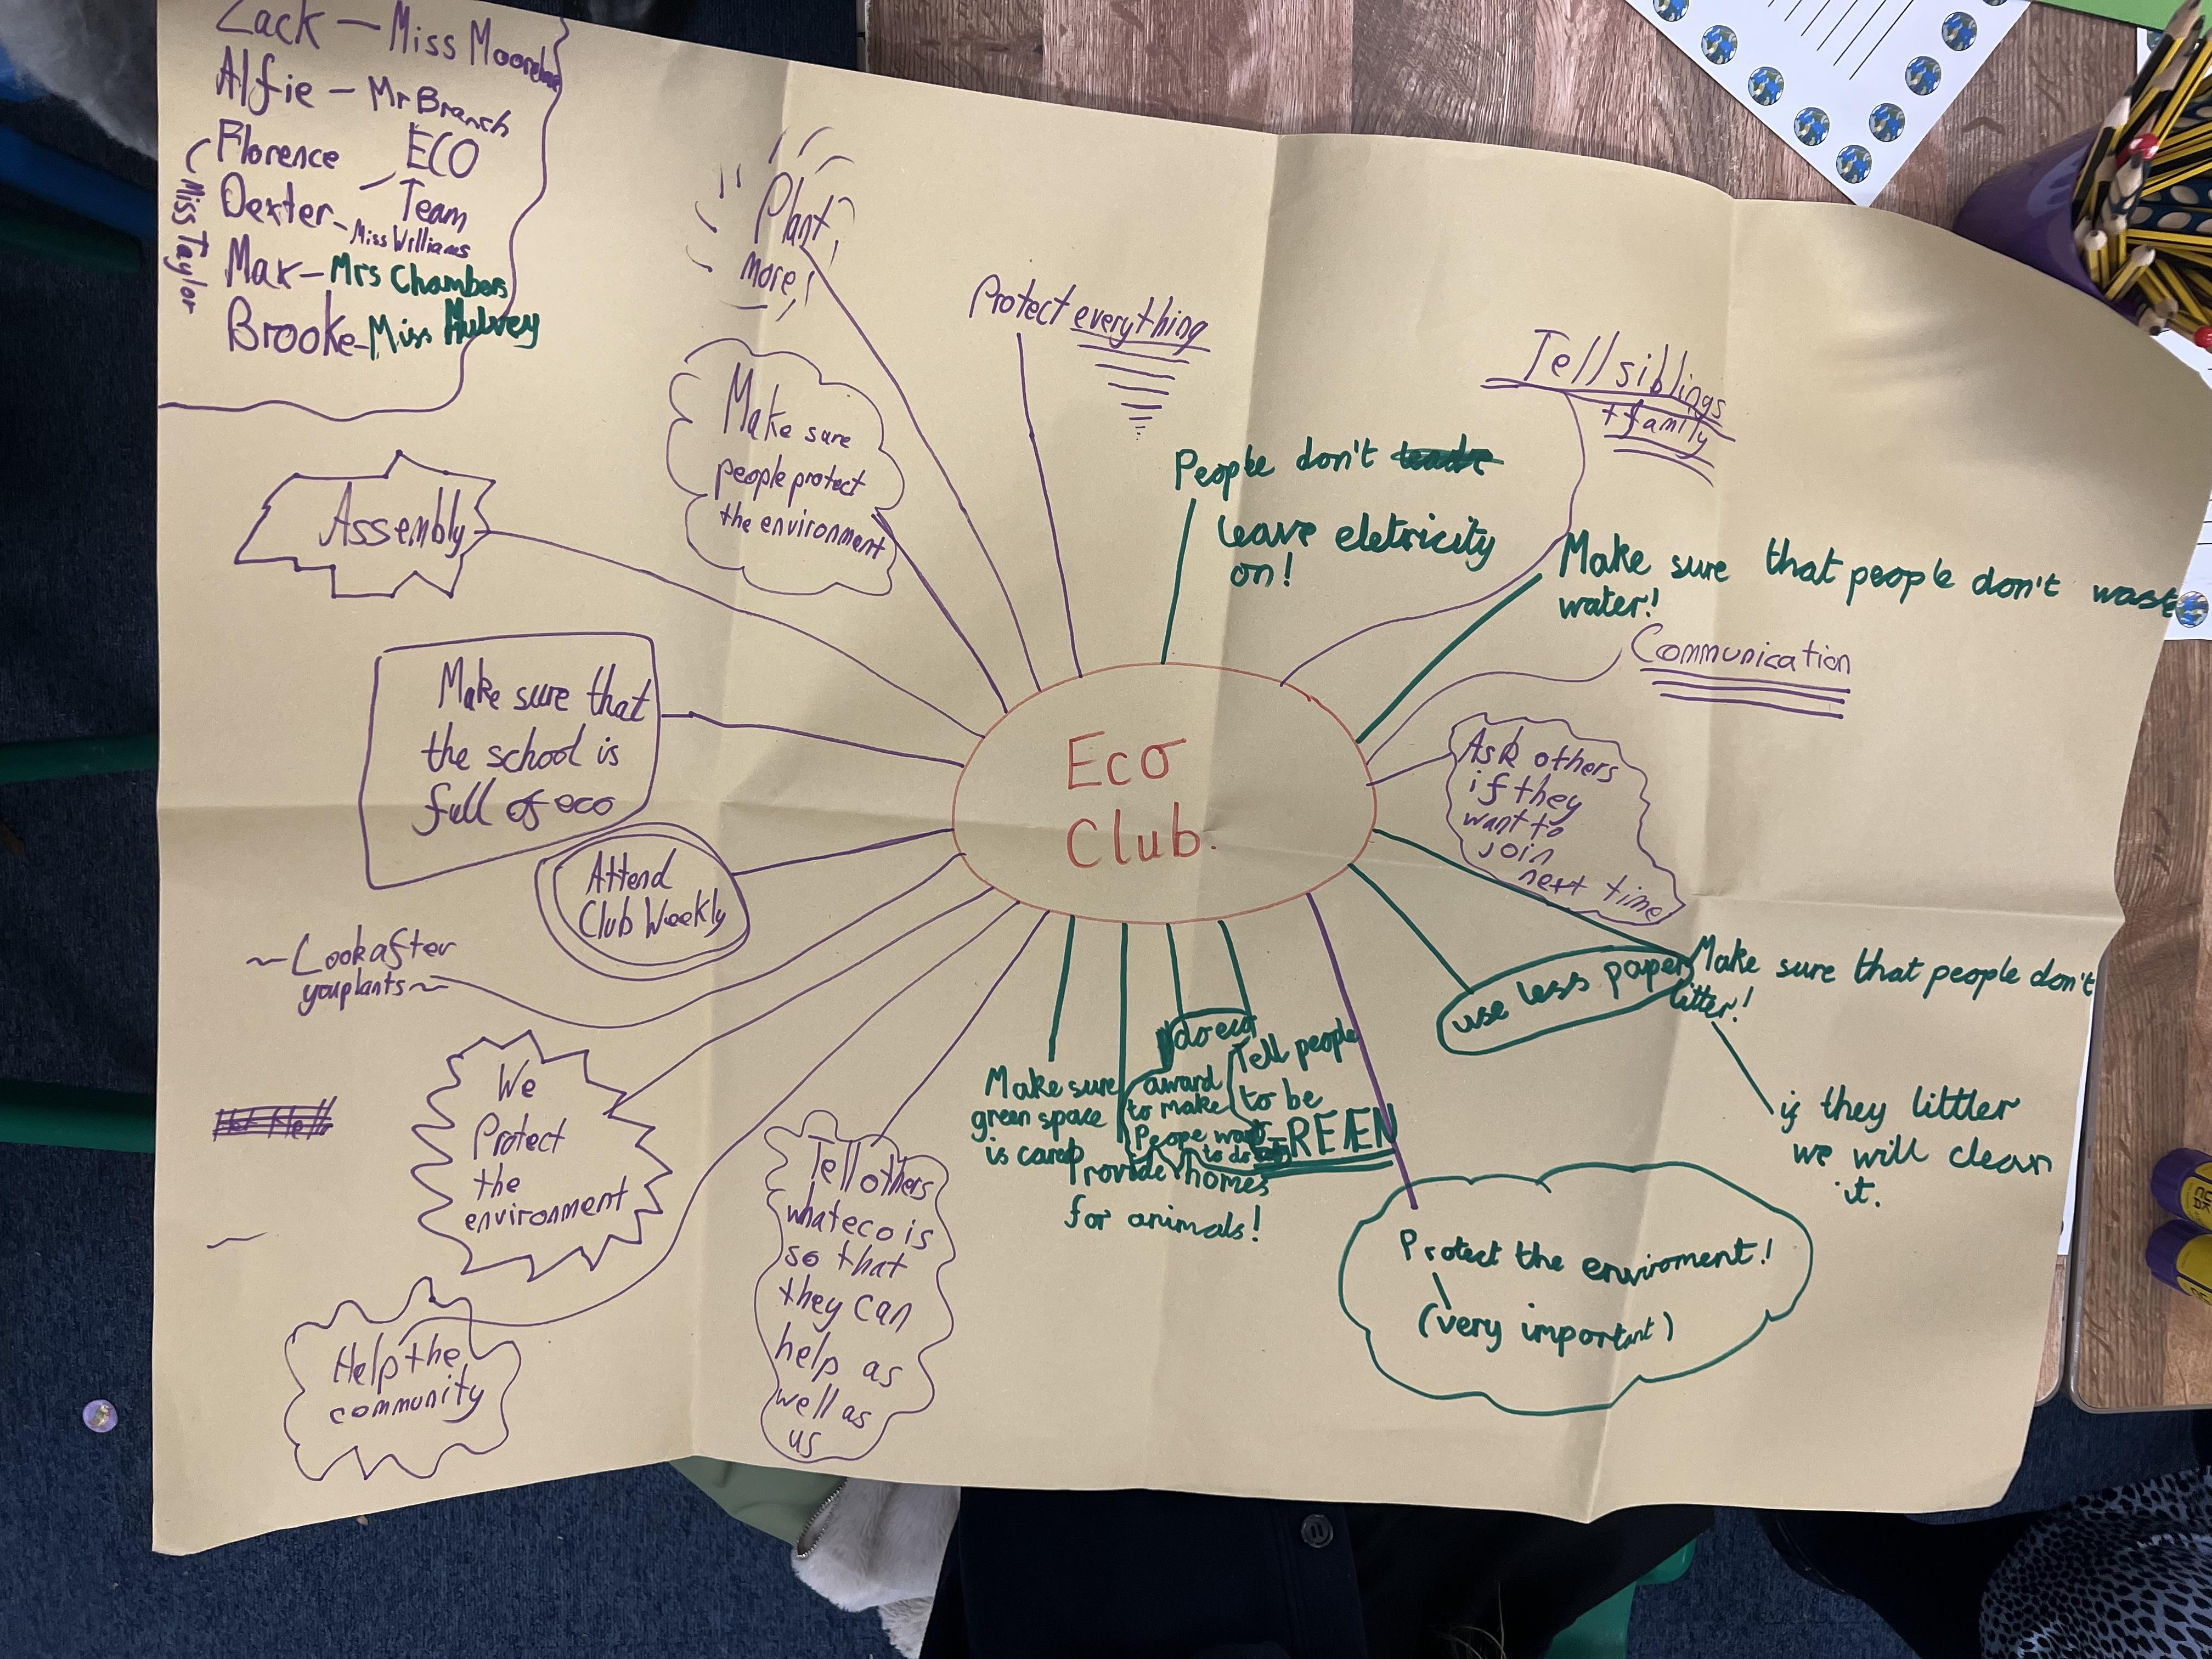 Zack - Miss
Alfie - Mr Branch
Florence
ECO
Team
Dexter - Miss Williams
(Miss Taylor
Max - Mrs Chambers
Brooke - Miss Mulvey
Plant
more!
Protect everything
Tell siblings
+ family
Make sure
people protect
the environment
People don't
leave eletricity
on!
Assembly
Make sure that people don't waste
water!
Communication
Make sure that
the school is
full of eco
Eco
Club.
Ask others
if they
want to
join
next time
Attend
Club Weekly
~Look after
you plants~
use less paper
Make sure that people don't
litter!
if they littler
we will clean
it.
We
Protect
the
environment
Make sure
green space
is cared
do eco
award
to make
Peope want
to do
Tell people
to be
GREEN
Provide homes
for animals!
Tell others
what eco is
so that
they can
help as
well as
us
Protect the enviroment!
(very important)
Help the
community